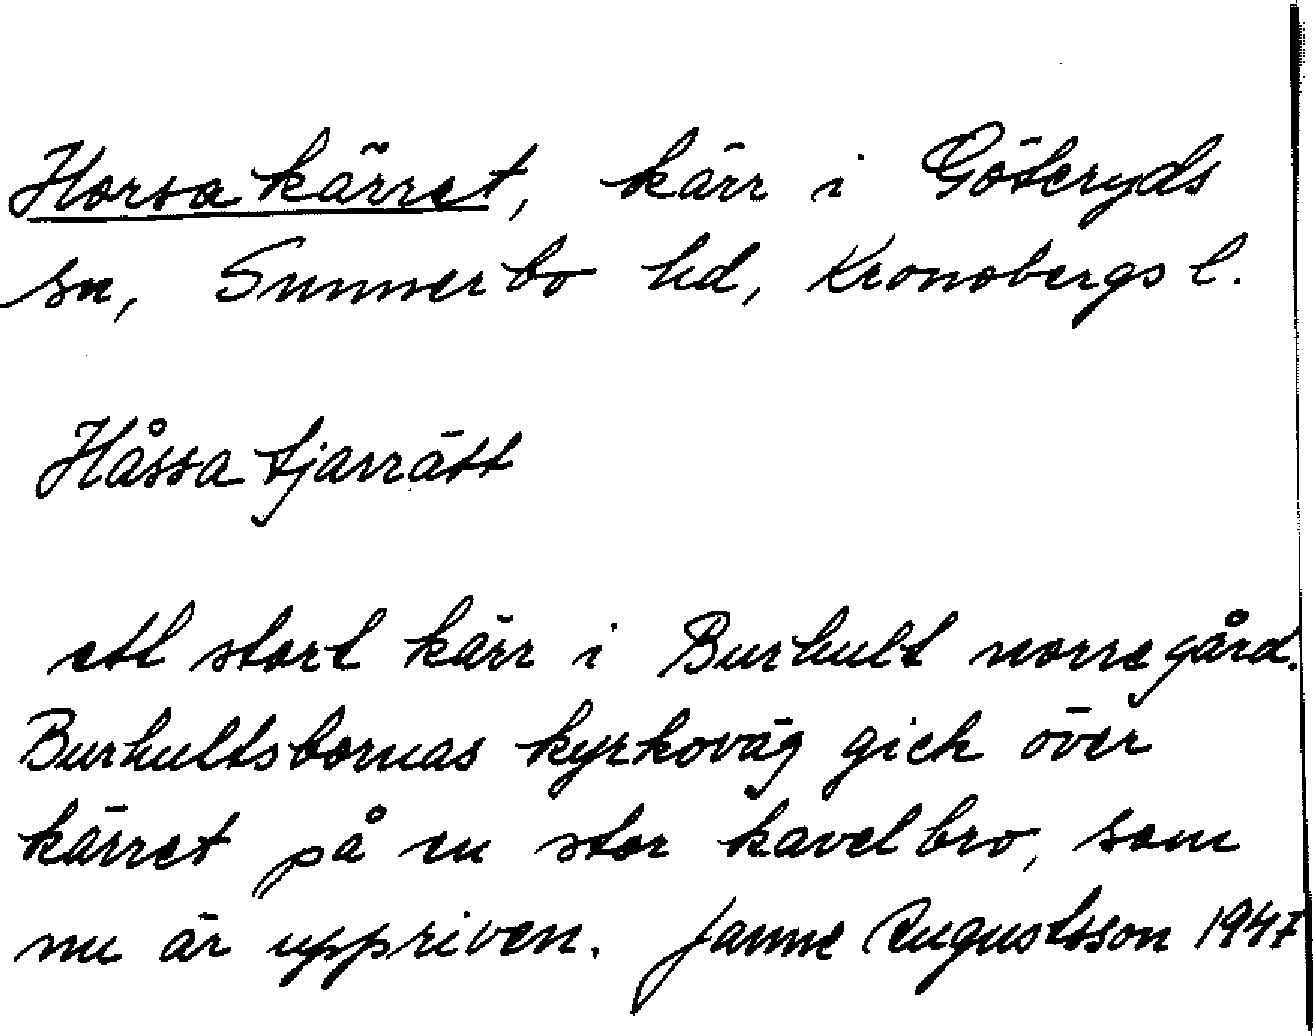 Horsakärret, kärr i Göteryds
sn, Sunnerbo hd, Kronobergs l.
Håssa tjarrätt
ett stort kärr i Burhult norregård.
Burhultsbornas kyrkoväg gick över
kärret på en stor kavelbro, som
nu är uppriven. Janne Augustsson 1947